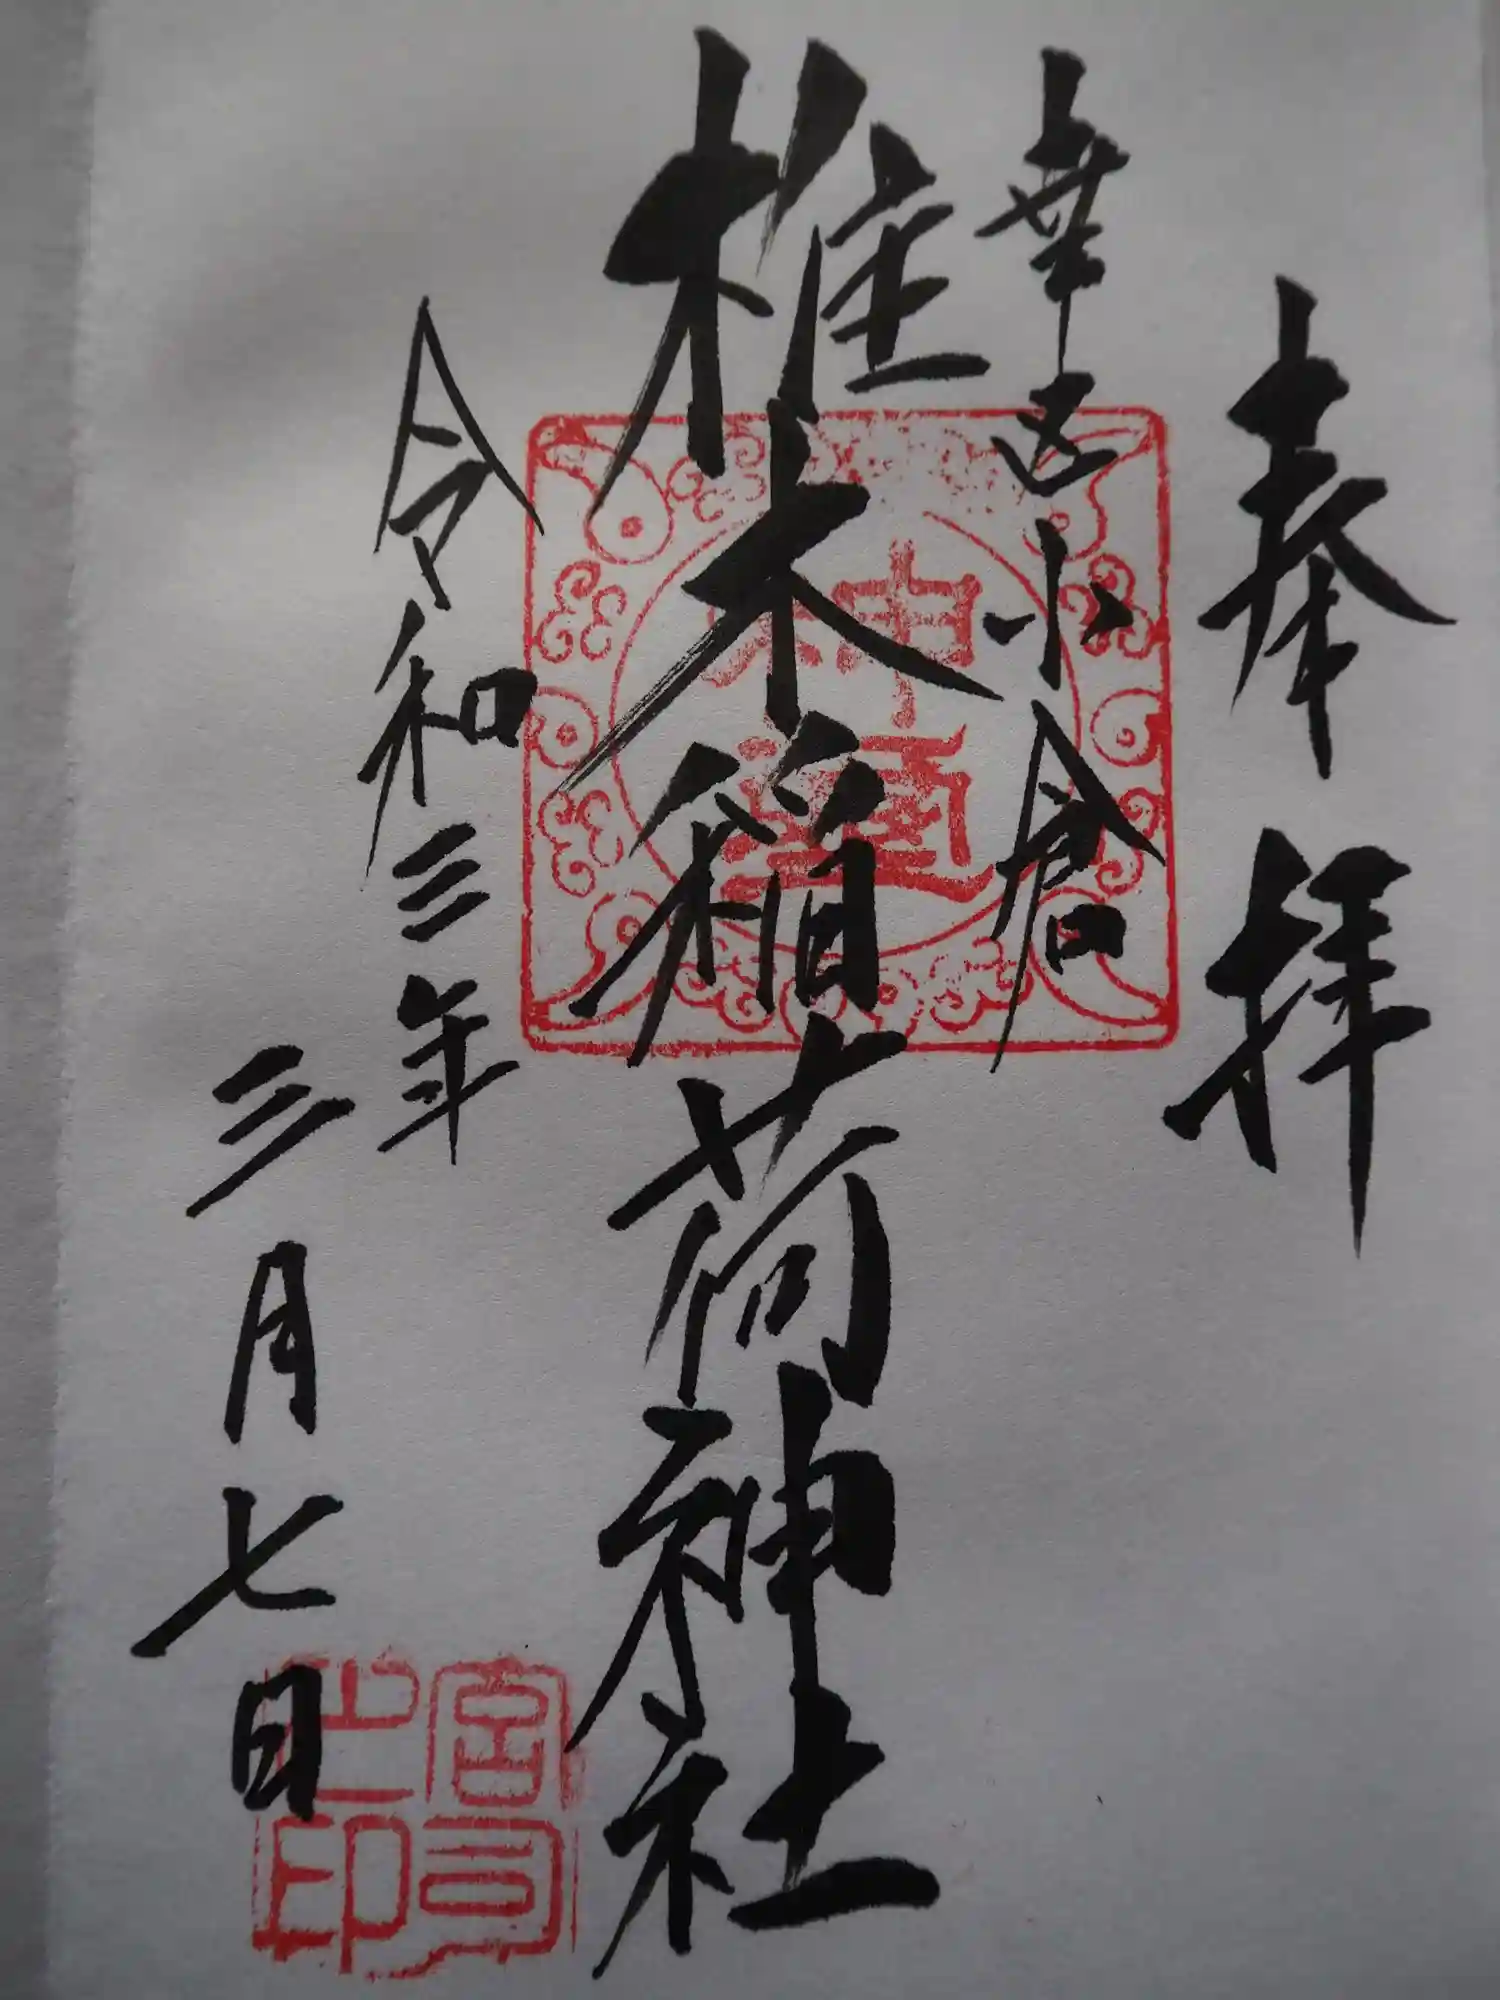 奉拝
幸区小倉
椎木稲荷神社
令和三年
三月七日
宮司
之印